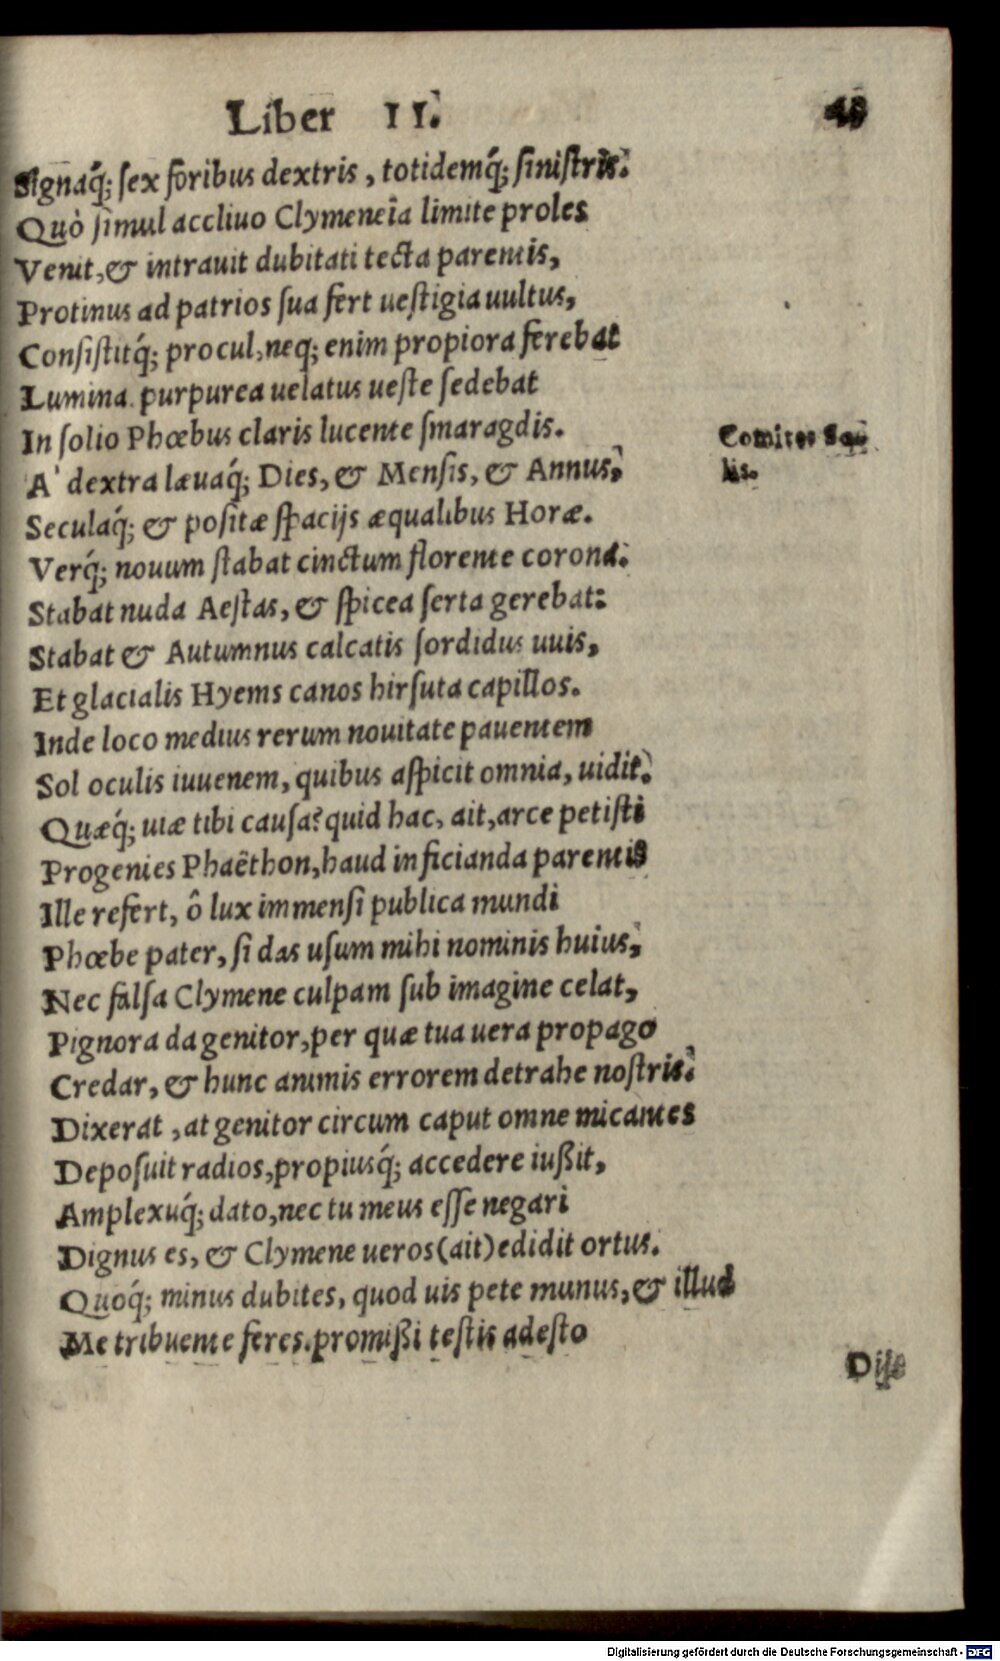 Liber II.
Signaq́; sex foribus dextris, totidemq́; sinistris.
Quò simul accliuo Clymeneïa limite proles
Venit, & intrauit dubitati tecta parentis,
Protinus ad patrios sua fert uestigia uultus,
Consistitq́; procul, neq; enim propiora ferebat
Lumina. purpurea uelatus ueste sedebat
In solio Phœbus claris lucente smaragdis.
A' dextra læuaq́; Dies, & Mensis, & Annus,
Comites So-
Seculaq́; & positæ spacijs æqualibus Horæ.
lis.
Verq́; nouum stabat cinctum florente corona.
Stabat nuda Aestas, & spicea serta gerebat:
Stabat & Autumnus calcatis sordidus uuis,
Et glacialis Hyems canos hirsuta capillos.
Inde loco medius rerum nouitate pauentem
Sol oculis iuuenem, quibus aspicit omnia, uidit.
Quæq́; uiæ tibi causa? quid hac, ait, arce petisti
Progenies Phaëthon, haud inficianda parentis
Ille refert, ô lux immensi publica mundi
Phœbe pater, si das usum mihi nominis huius,
Nec falsa Clymene culpam sub imagine celat,
Pignora da genitor, per quæ tua uera propago
Credar, & hunc animis errorem detrahe nostris.
Dixerat, at genitor circum caput omne micantes
Deposuit radios, propiusq́; accedere iußit,
Amplexuq́; dato, nec tu meus esse negari
Dignus es, & Clymene ueros (ait) edidit ortus.
Quoq́; minus dubites, quod uis pete munus, & illud
Me tribuente feres. promißi testis adesto
Digitalisierung gefördert durch die Deutsche Forschungsgemeinschaft - DFG